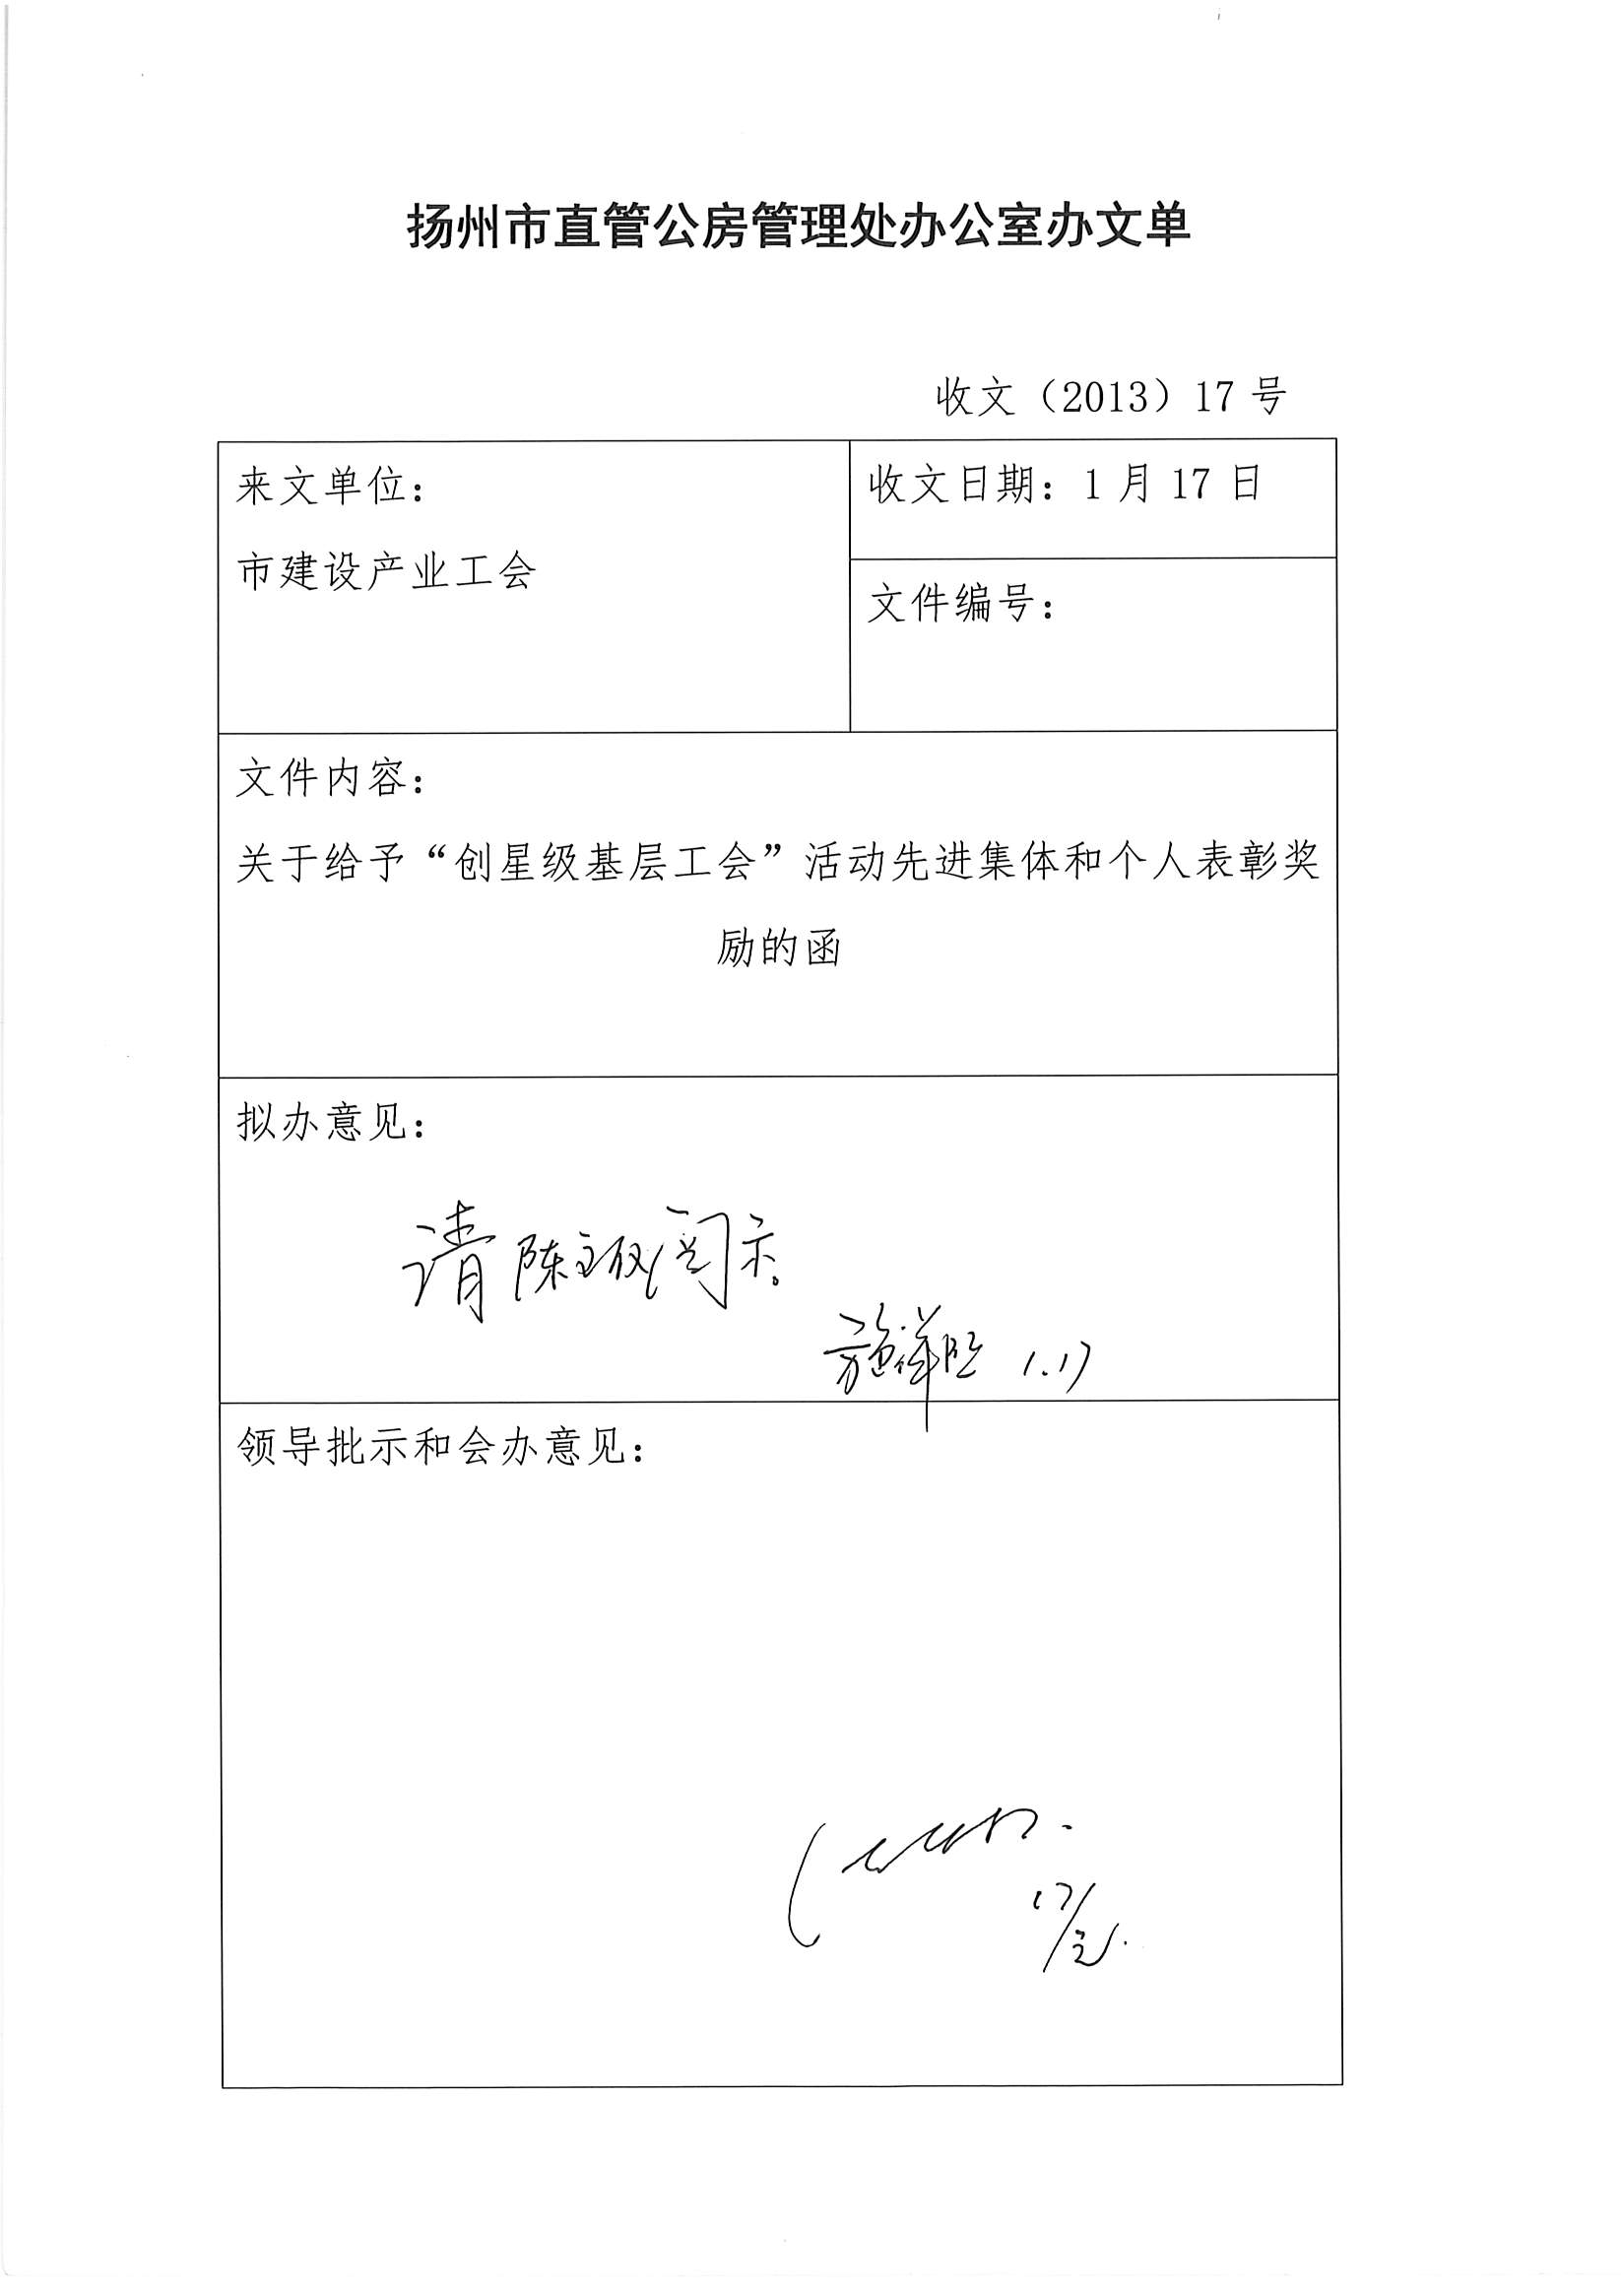 扬州市直管公房管理处办公室办文单
收文（2013）17 号
来文单位：
市建设产业工会
收文日期：1 月 17 日
文件编号：
文件内容：
关于给予“创星级基层工会”活动先进集体和个人表彰奖
励的函
拟办意见：
请陈主政阅示。
1.17
领导批示和会办意见：
17/元.